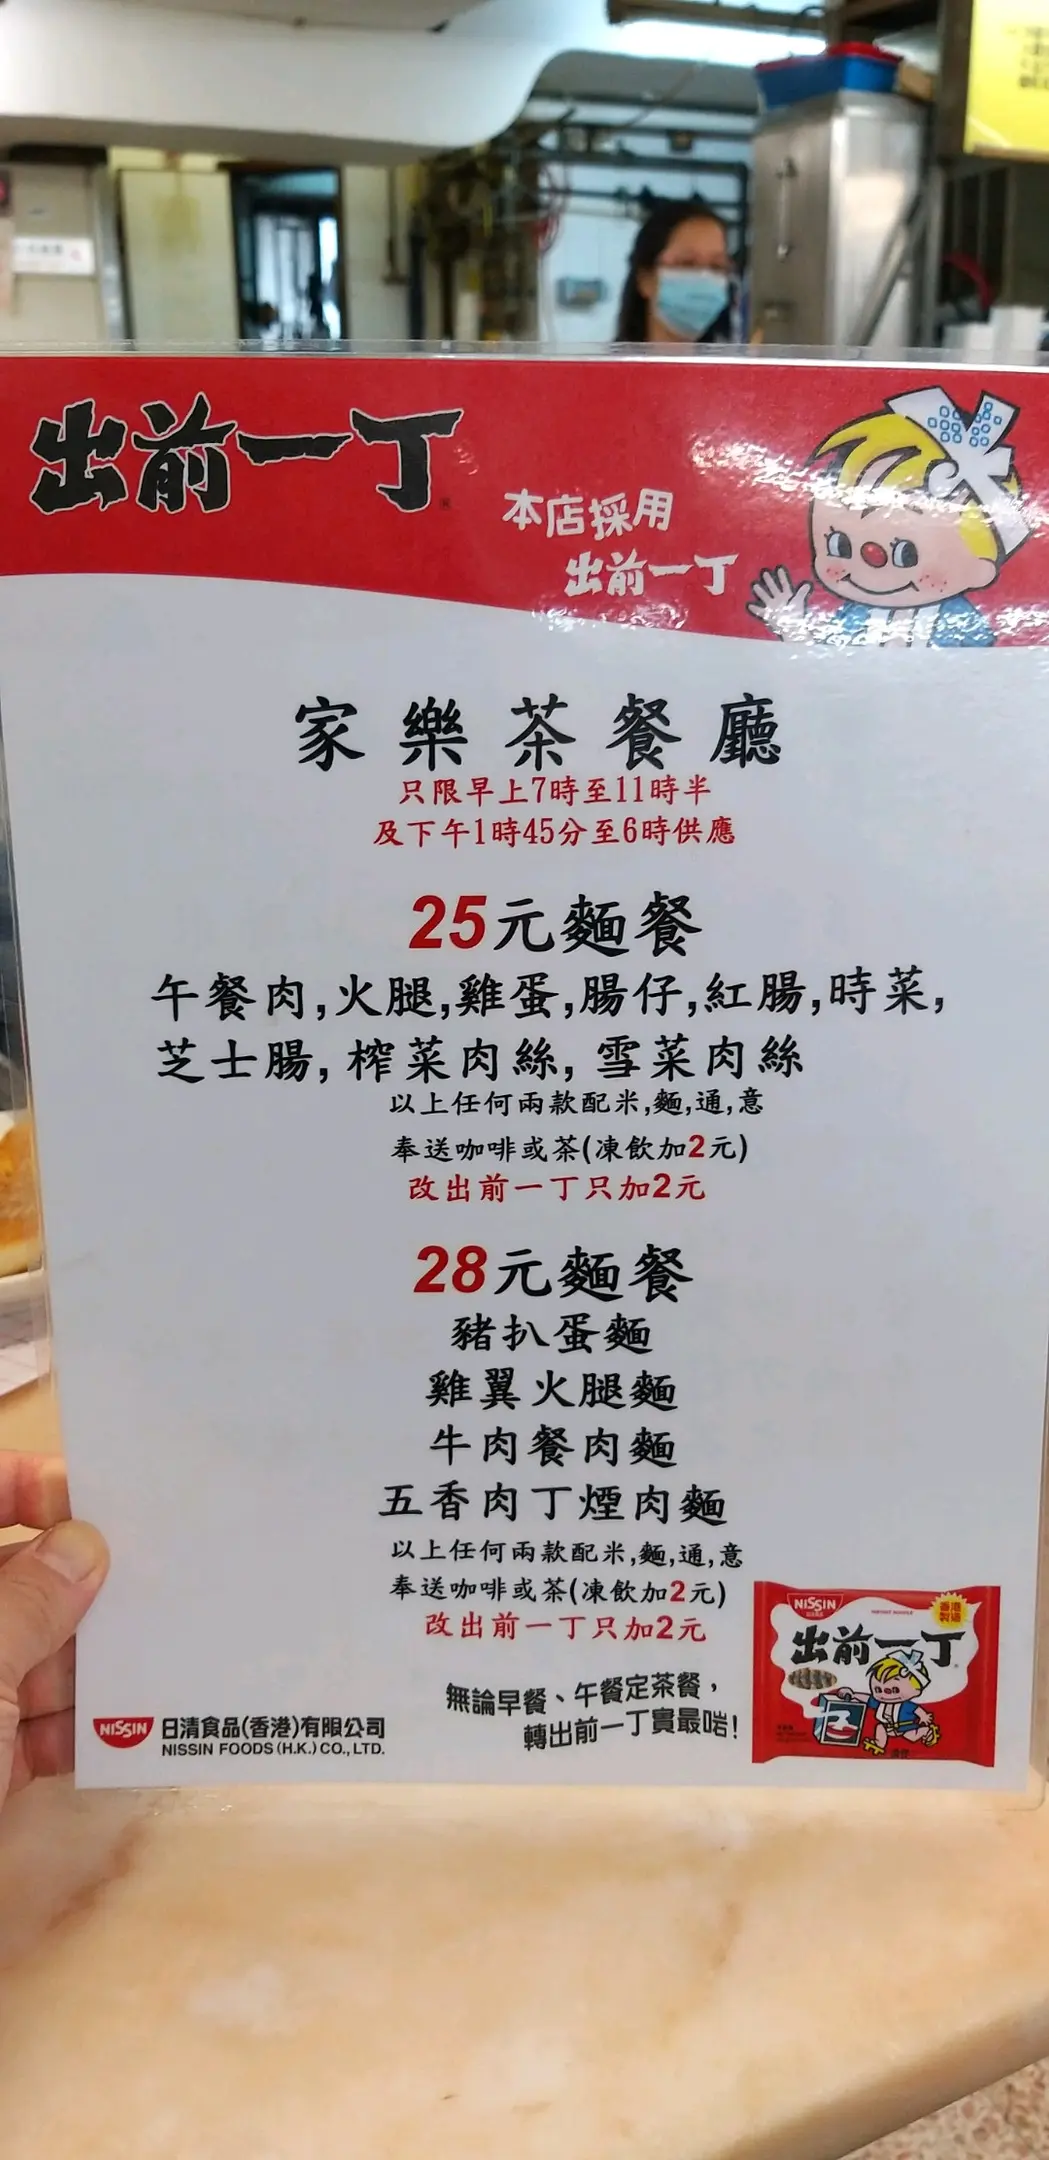 出前一丁
本店採用
出前一丁
家樂茶餐廳
只限早上7時至11時半
及下午1時45分至6時供應
25元麵餐
午餐肉,火腿,雞蛋,腸仔,紅腸,時菜,
芝士腸,榨菜肉絲,雪菜肉絲
以上任何兩款配米,麵,通,意
奉送咖啡或茶(凍飲加2元)
改出前一丁只加2元
28元麵餐
豬扒蛋麵
雞翼火腿麵
牛肉餐肉麵
五香肉丁煙肉麵
以上任何兩款配米,麵,通,意
奉送咖啡或茶(凍飲加2元)
改出前一丁只加2元
無論早餐、午餐定茶餐,
轉出前一丁實最啱!
NISSIN 日清食品(香港)有限公司
NISSIN FOODS (H.K.) CO., LTD.
NISSIN
香港
製造
出前一丁